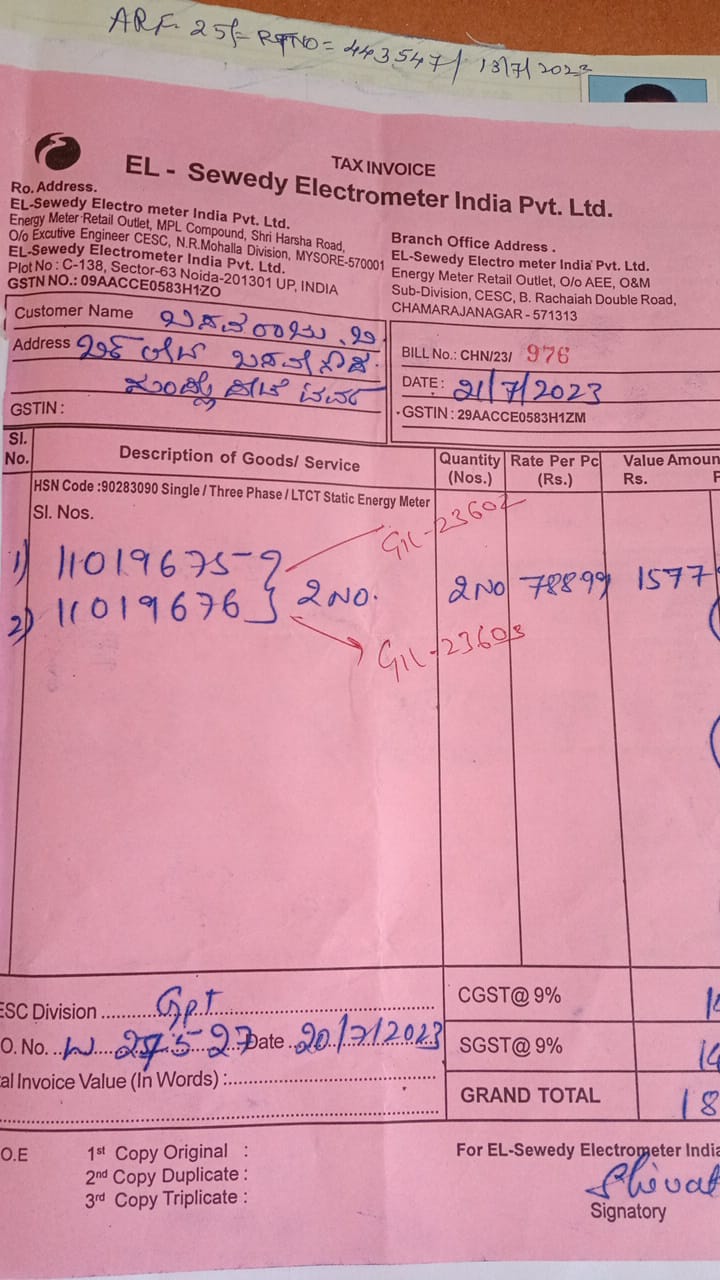 ARF. 25/- RTNO = 443547/ 13/7/2023
TAX INVOICE
EL - Sewedy Electrometer India Pvt. Ltd.
Ro. Address.
EL-Sewedy Electro meter India Pvt. Ltd.
Energy Meter Retail Outlet, MPL Compound, Shri Harsha Road,
O/o Excutive Engineer CESC, N.R.Mohalla Division, MYSORE-570001
EL-Sewedy Electrometer India Pvt. Ltd.
Plot No : C-138, Sector-63 Noida-201301 UP, INDIA
GSTN NO.: 09AACCE0583H1ZO
Branch Office Address .
EL-Sewedy Electro meter India Pvt. Ltd.
Energy Meter Retail Outlet, O/o AEE, O&M
Sub-Division, CESC, B. Rachaiah Double Road,
CHAMARAJANAGAR - 571313
Customer Name ಬಸವರಾಜು .ಬಿ
Address
GSTIN :
BILL No.: CHN/23/ 976
DATE : 21/7/2023
GSTIN : 29AACCE0583H1ZM
Sl. No. Description of Goods/ Service Quantity (Nos.) Rate Per Pc (Rs.) Value Amoun Rs. P
HSN Code :90283090 Single / Three Phase / LTCT Static Energy Meter
Sl. Nos.
1) 11019675
2) 11019676 } 2 NO. 2 NO 78899 1577
ESC Division Gpt
CGST@ 9% 14
O. No. Date 20/7/2023
SGST@ 9% 14
al Invoice Value (In Words) :
GRAND TOTAL 18
O.E
1st Copy Original :
2nd Copy Duplicate :
3rd Copy Triplicate :
For EL-Sewedy Electrometer India
Signatory